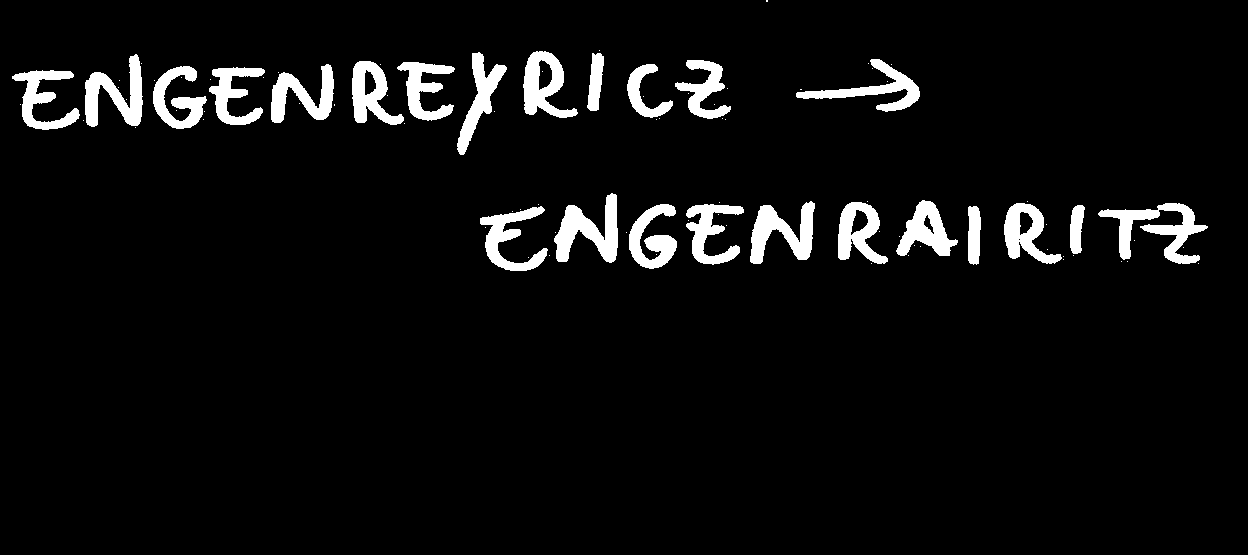 ENGENREYRICZ →
ENGENRAIRITZ